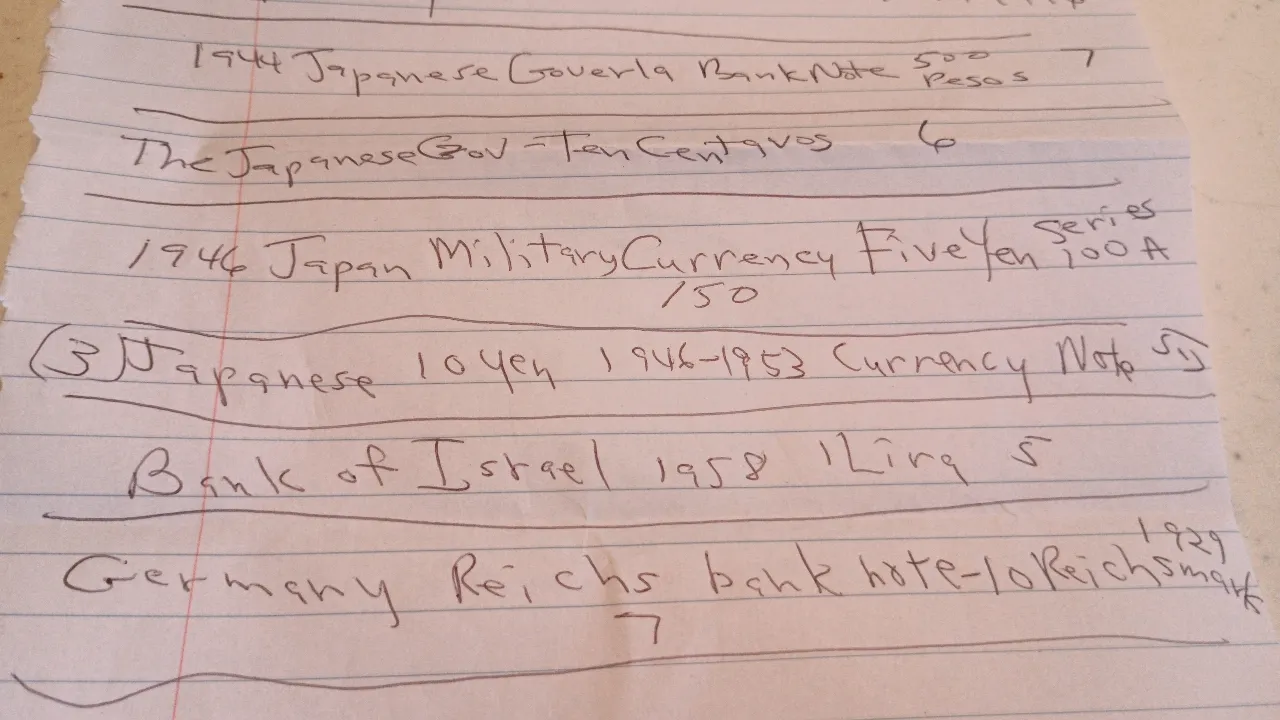 1944 Japanese Goverla BankNote 500 Pesos 7
The Japanese Gov - Ten Centavos 6
1946 Japan Military Currency Five Yen Series 100 A
150
(3) Japanese 10 yen 1946-1953 Currency Note
Bank of Israel 1958 1 Lira 5
Germany Reichs bank note - 10 Reichsmark 1929
7